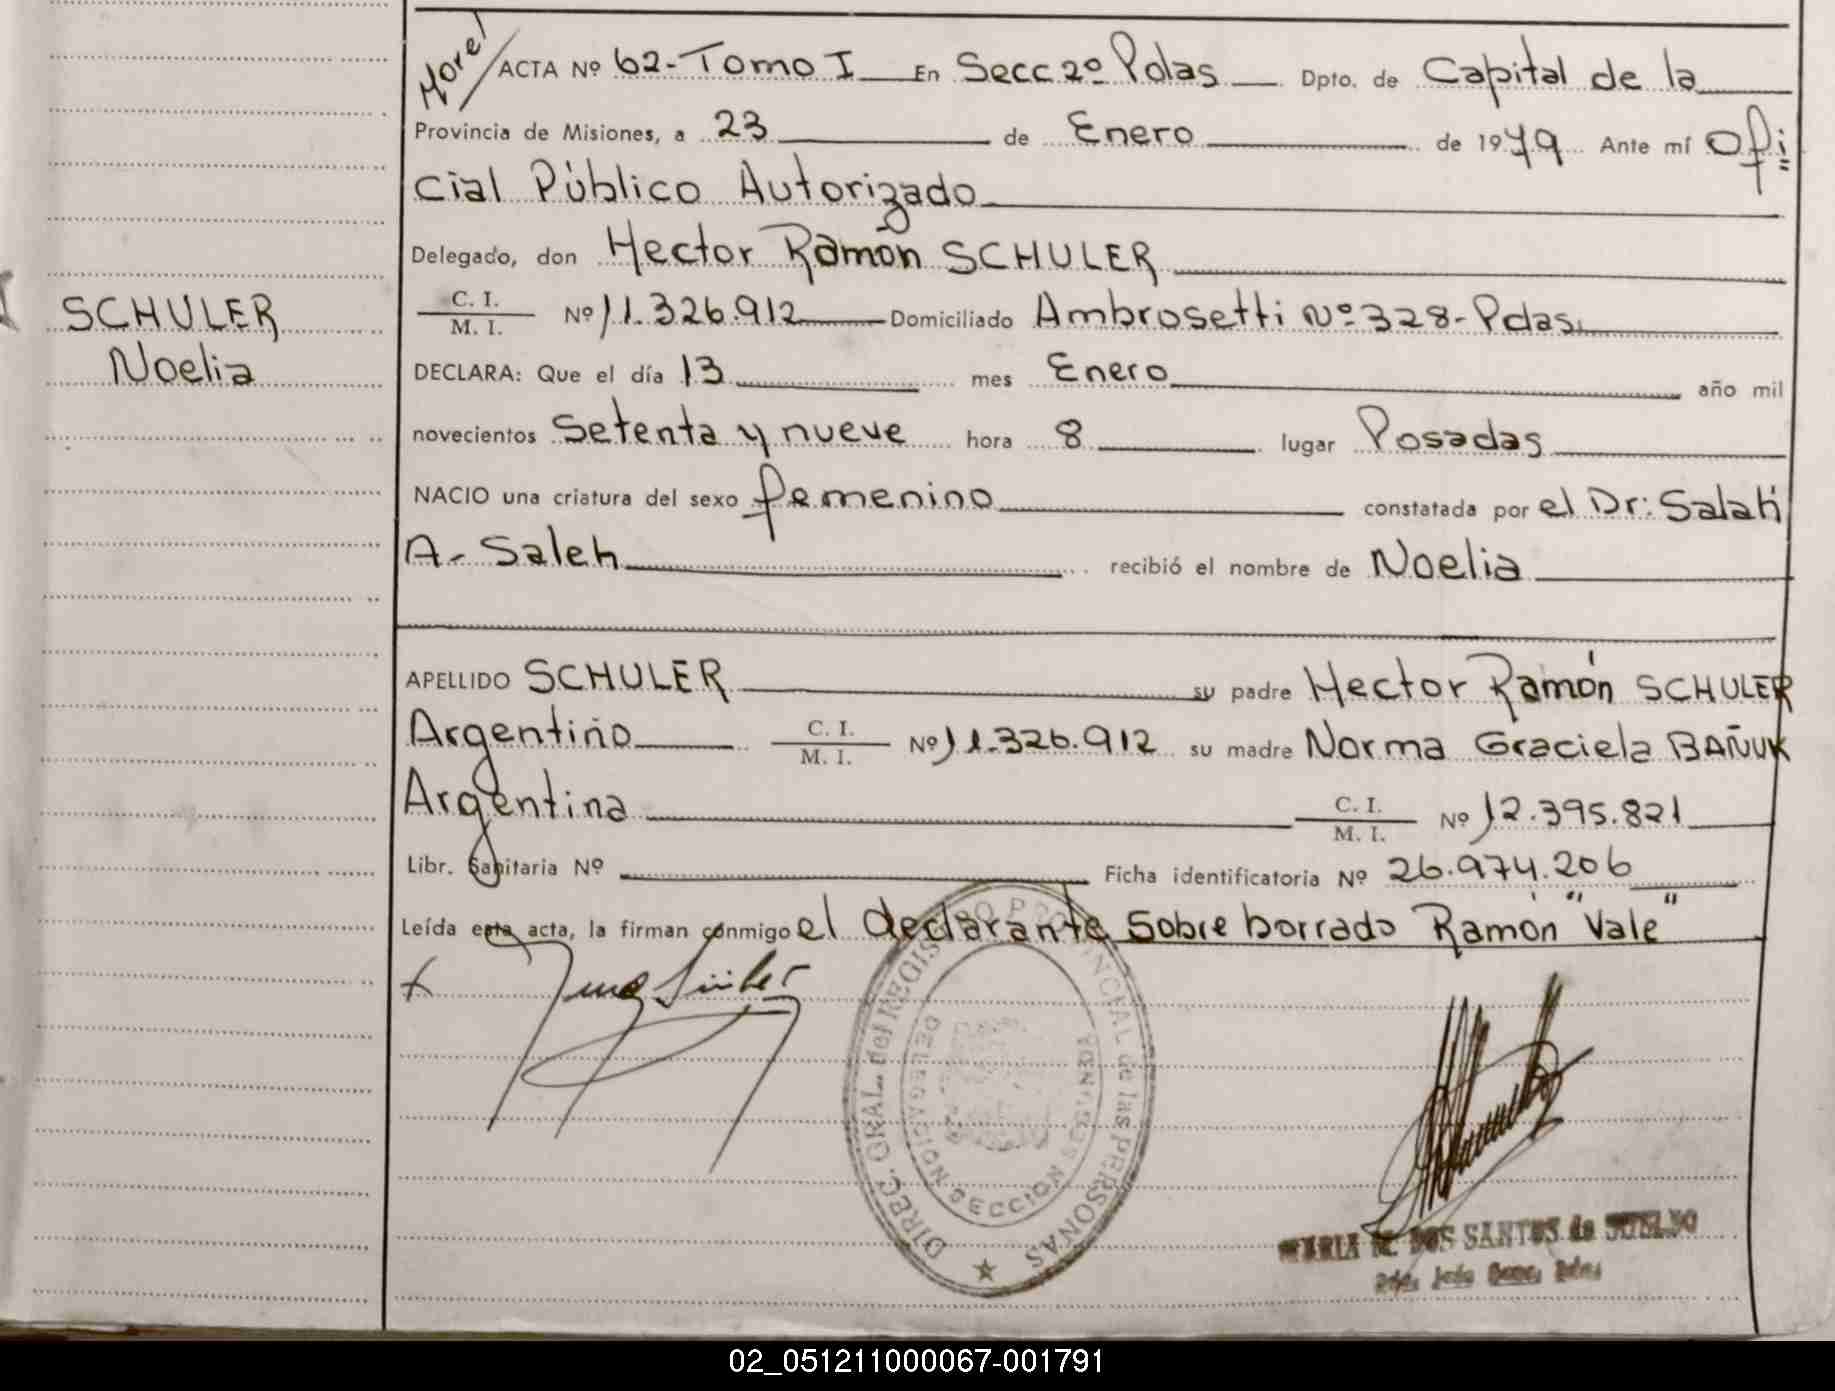 Morel
ACTA Nº 62-Tomo I En Secc 2º Pdas Dpto. de Capital de la
Provincia de Misiones, a 23 de Enero de 1979 Ante mí Ofi
cial Público Autorizado
Delegado, don Hector Ramón SCHULER
SCHULER
Noelia
C. I.
M. I. Nº 11.326.912 Domiciliado Ambrosetti Nº 328-Pdas.
DECLARA: Que el día 13 mes Enero año mil
novecientos setenta y nueve hora 8 lugar Posadas
NACIO una criatura del sexo femenino constatada por el Dr: Salati
A- Saleh recibió el nombre de Noelia
APELLIDO SCHULER su padre Hector Ramón SCHULER
Argentino C. I. M. I. Nº 11.326.912 su madre Norma Graciela BAÑUK
Argentina C. I. M. I. Nº 12.395.821
Libr. Sanitaria Nº Ficha identificatoria Nº 26.974.206
Leída esta acta, la firman conmigo el declarante sobre borrado Ramón "Vale"
DIREC. GRAL. del REGISTRO PROVINCIAL de las PERSONAS
DELEGACION SECCION
MARIA DOS SANTOS de SUELDO
02_051211000067-001791